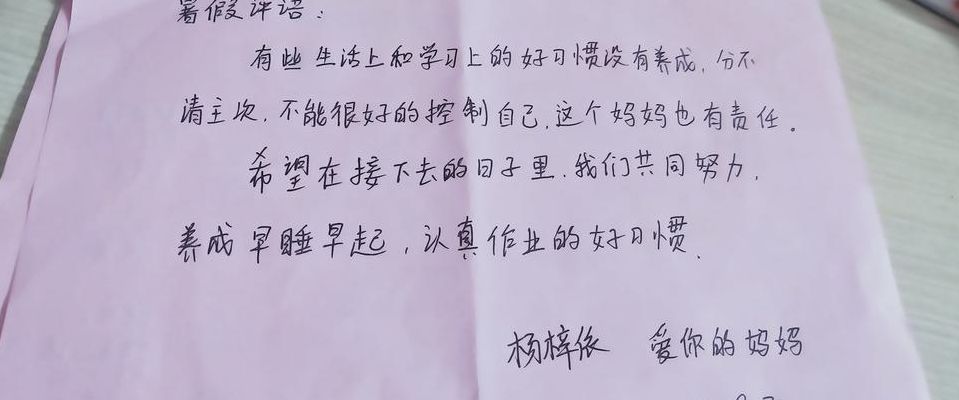 暑假评语：
有些生活上和学习上的好习惯没有养成，分不
清主次，不能很好的控制自己，这个妈妈也有责任。
希望在接下去的日子里，我们共同努力，
养成早睡早起，认真作业的好习惯。
杨梓依 爱你的妈妈